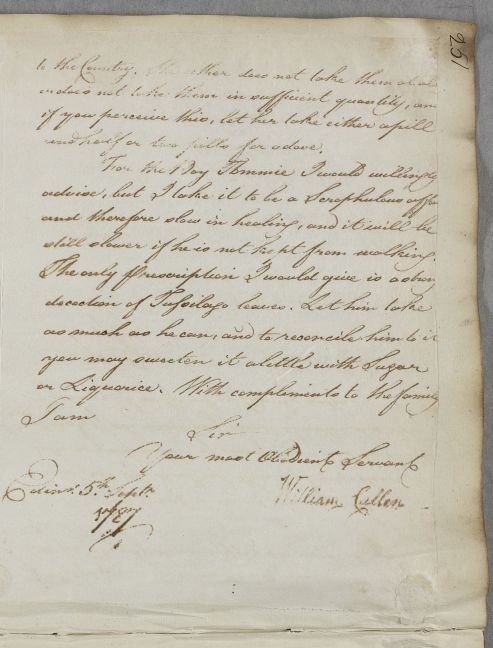 251
to the Country. She either does not take them at al
or does not take them in sufficient quantity, an
if you perceive this, let her take either a pill
and half or two pills for a dose.
For the Boy Tommie I would willingly
advise, but I take it to be a Scrophulous affe
and therefore slow in healing, and it will be
still slower if he is not kept from walking.
The only Prescription I would give is a stron
decoction of Tussilago leaves. Let him take
as much as he can, and to reconcile him to it
you may sweeten it a little with Sugar
or Liquorice. With compliments to the family
I am
Sir
Your most Obedient Servant
William Cullen
Edinr. 5th Septr.